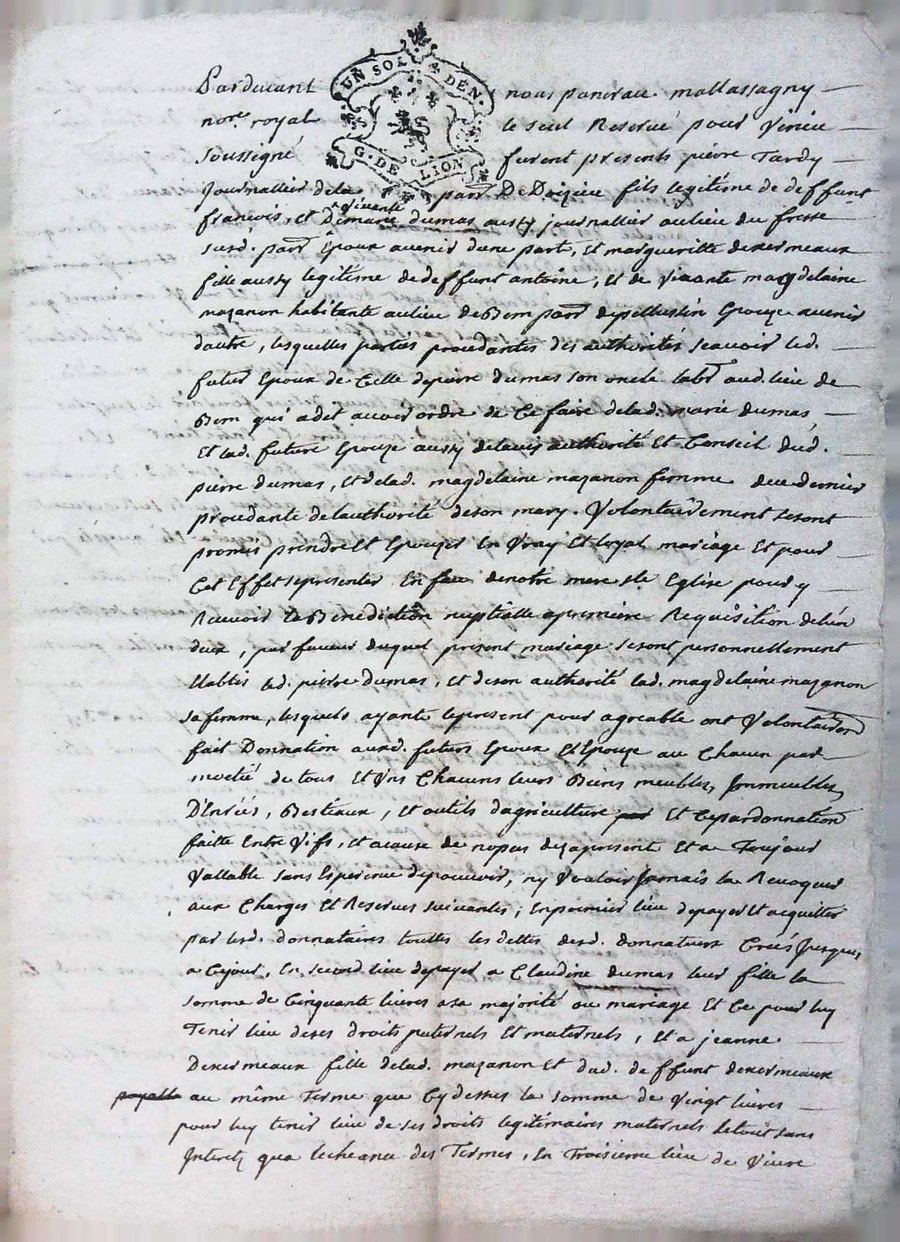 UN SOL 4 DEN.
G. DE LION
Pardevant nous pancrace mallassagny
nore. royal le seul Reservé pour virieu
soussigné furent presents pierre Tardy
Journallier de la parr. De Doizieu fils legitime de deffunt
francois, et vivante
Demarie dumas aussy journallier au lieu du
surd. parr. Epoux avenir dune part, et margueritte dexermeaux
fille aussy legitime de deffunt antoine, et de vivante magdelaine
mazanon habitante au lieu de Bem parr. Epouze avenir
dautre, lesquelles parties procedantes des authorités scavoir led.
futur Epoux de Celle depierre dumas son oncle labr aud. lieu de
Bem qui adit avoir ordre de Ce faire delad. marie dumas
Et lad. future Epouze aussy delavis authorité Et Conseil dud.
pierre dumas, et delad. magdelaine mazanon femme dece dernier
procedante de lauthorité deson mary. Volontairement sesont
promis prendre Et Epouzer En vray Et loyal mariage Et pour
Cet Effet sepresenter En face denotre mere ste Eglise pour y
Recevoir la Benediction nuptialle apremiere Requisition delun
deux, par faveur duquel present mariage sesont personnellement
Etablis led. pierre dumas, et deson authorité lad. magdelaine mazanon
sa femme, lesquels ayants lepresent pour agreable ont
fait Donnation auxd. futurs Epoux Et Epouze au Chacun par
moetié de tous Et Uns Chacuns leurs Biens meubles, Jmmeubles,
Denrées, Bestiaux, et outils dagriculture par Et Cepardonnation
faite Entre vifs, et acause de nopas dezapresent Et a Toujour
vallable sans Esperence depouvoir, ny vouloir Jamais la Revoquer
aux Charges Et Reserves suivantes, En premier lieu depayer Et acquitter
par lesd. donnataires touttes les dettes desd. donnateurs Creés Jusques,
a Cejour, En second lieu depayer a Claudine dumas leur fille la
somme de Cinquante livres asa majorité ou mariage Et Ce pour luy
Tenir lieu deses droits paternels Et maternels, Et a jeanne
Dexermeaux fille delad. mazanon Et dud. deffunt dexermeaux
payable au même Terme que Cy dessus la somme de vingt livres
pour luy tenir lieu de ses droits legitimaires maternels letout sans
Interetz qua lecheance des Termes, En Troisieme lieu de vivre